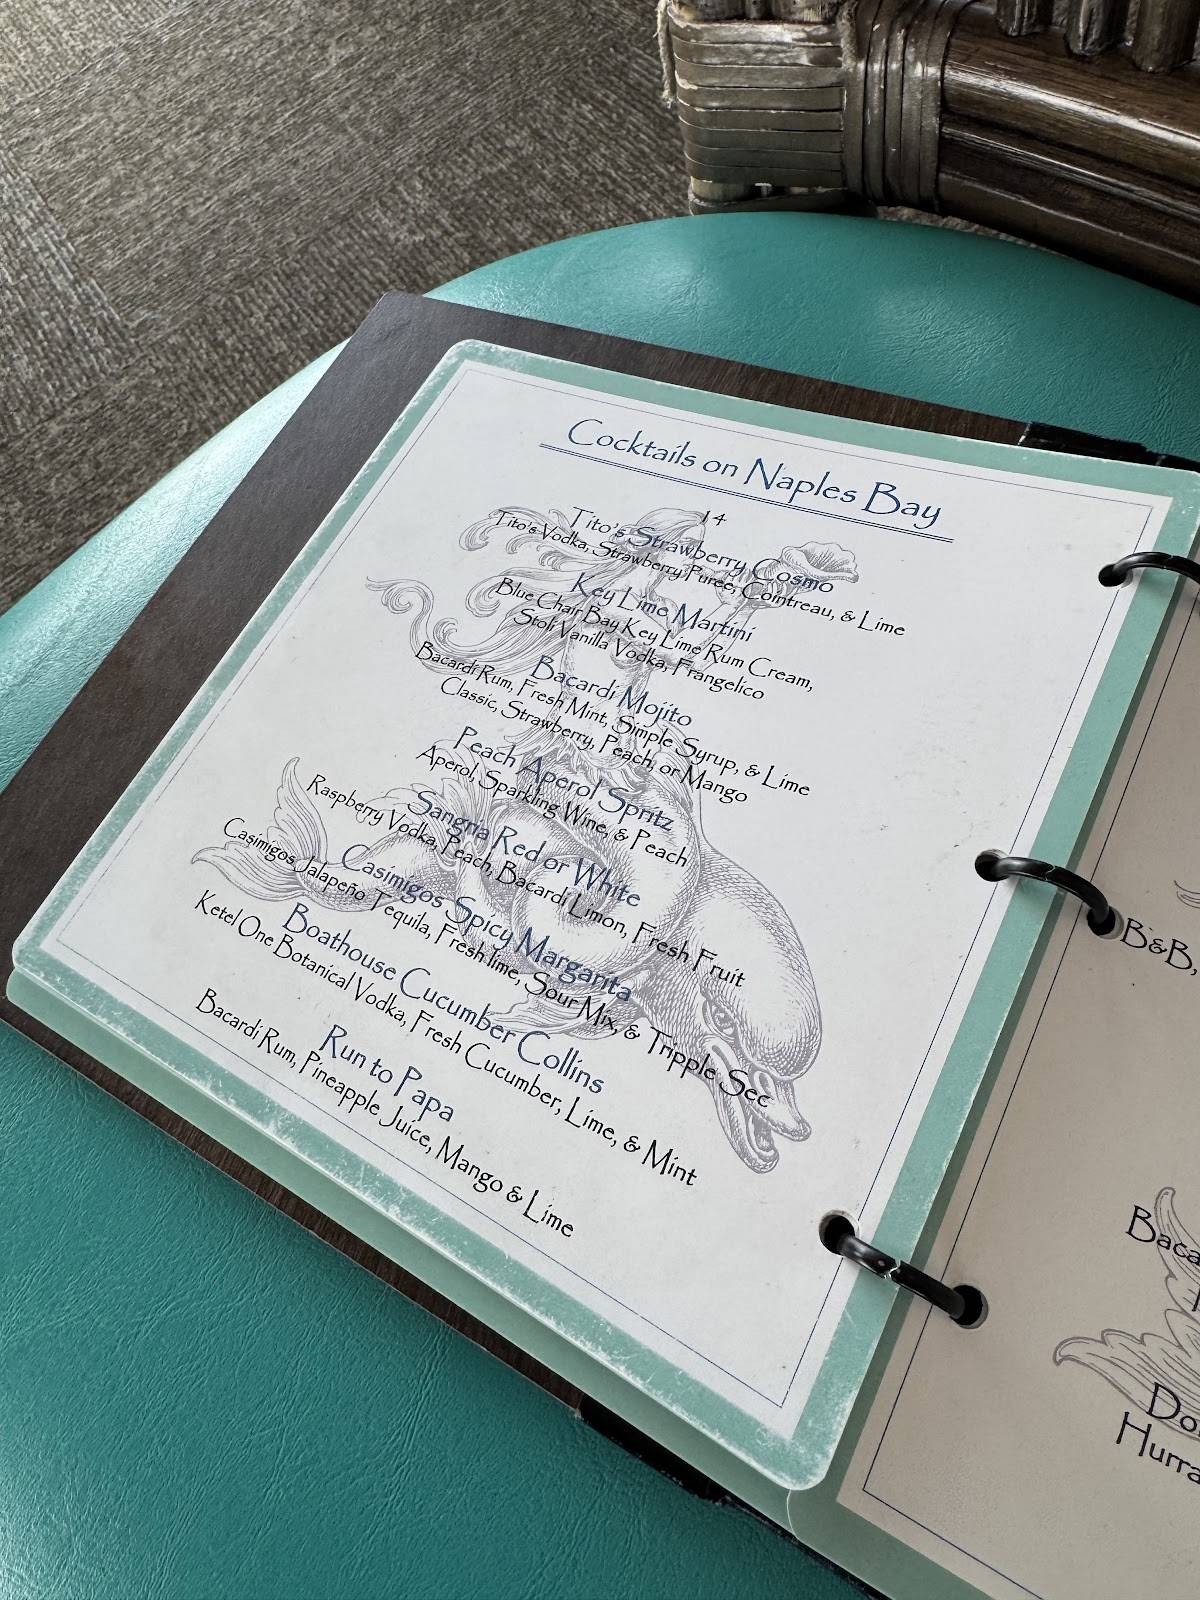 Cocktails on Naples Bay
14
Tito's Strawberry Cosmo
Tito's Vodka, Strawberry Puree, Cointreau, & Lime
Key Lime Martini
Blue Chair Bay Key Lime Rum Cream,
Stoli Vanilla Vodka, Frangelico
Bacardi Mojito
Bacardi Rum, Fresh Mint, Simple Syrup, & Lime
Classic, Strawberry, Peach, or Mango
Peach Aperol Spritz
Aperol, Sparkling Wine, & Peach
Sangria Red or White
Raspberry Vodka, Peach, Bacardi Limon, Fresh Fruit
Casimigos Spicy Margarita
Casimigos Jalapeño Tequila, Fresh lime, Sour Mix, & Tripple Sec
Boathouse Cucumber Collins
Ketel One Botanical Vodka, Fresh Cucumber, Lime, & Mint
Run to Papa
Bacardi Rum, Pineapple Juice, Mango & Lime
B&B,
Baca
Hurra